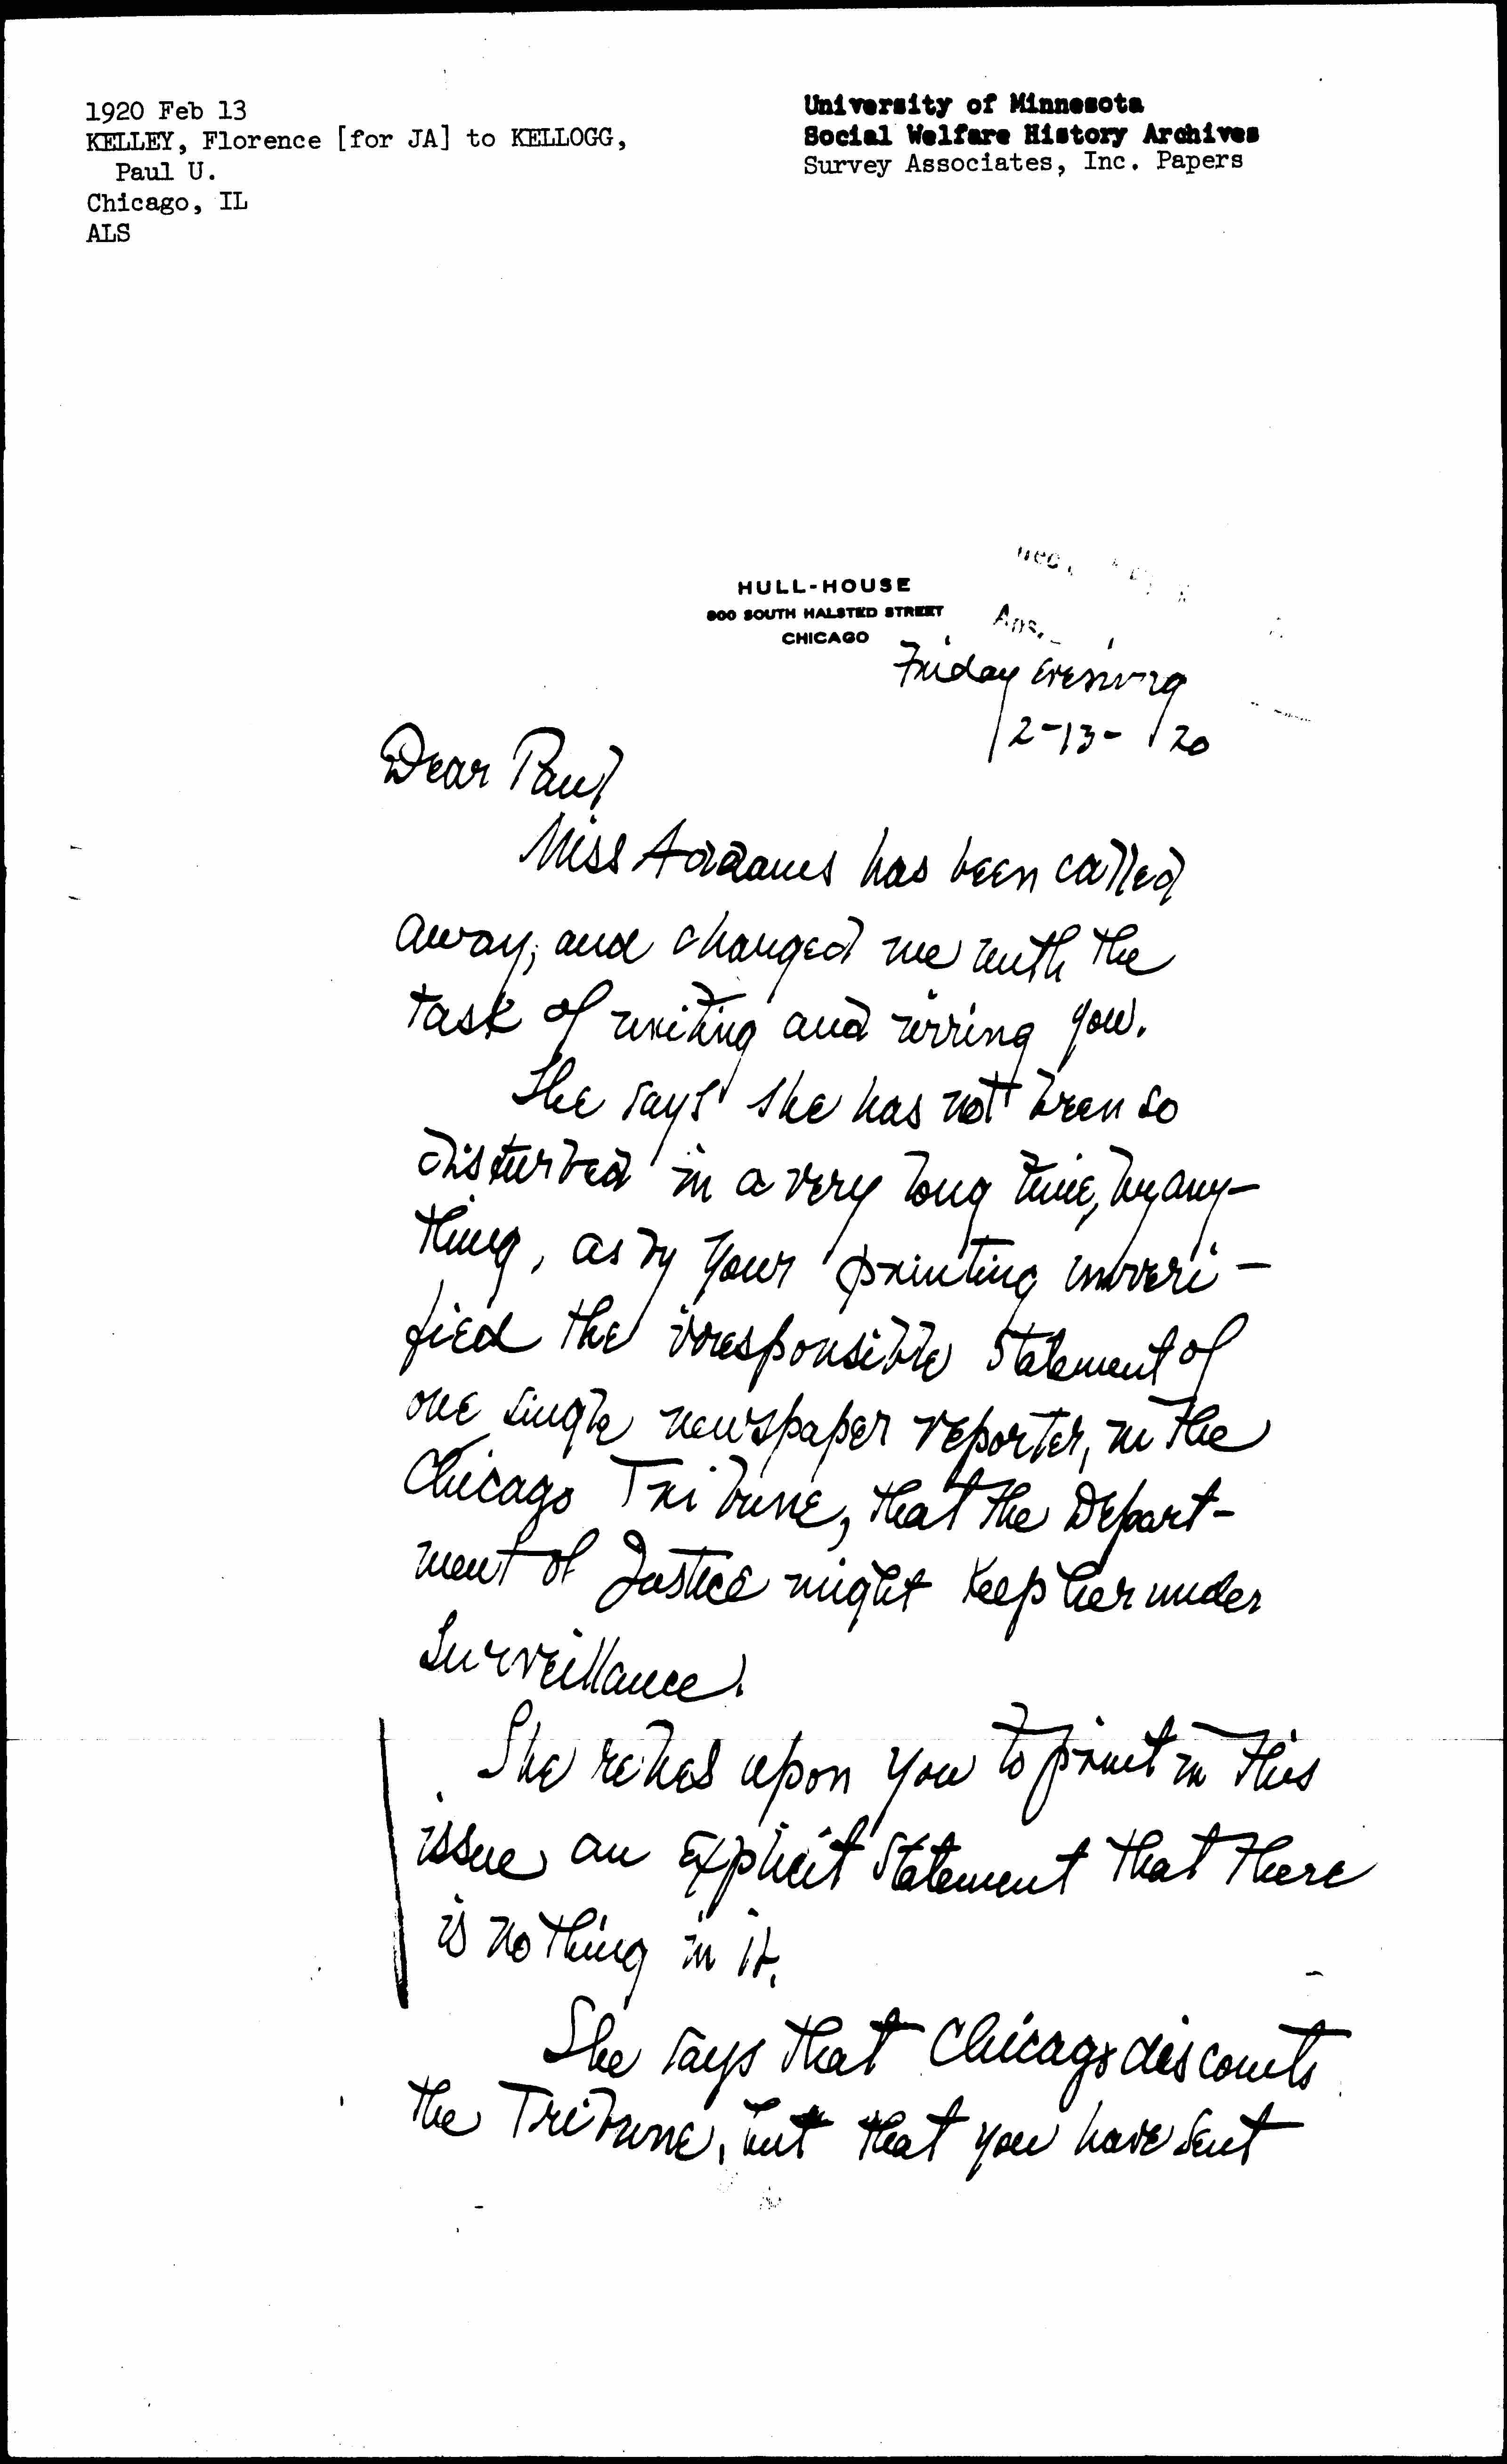 1920 Feb 13
KELLEY, Florence [for JA] to KELLOGG,
Paul U.
Chicago, IL
ALS
University of Minnesota
Social Welfare History Archives
Survey Associates, Inc. Papers
HULL-HOUSE
800 SOUTH HALSTED STREET
CHICAGO
Ans.
Friday evening
2-13-20
Dear Paul
Miss Addams has been called
away, and charged me with the
task of writing and wiring you.
She says she has not been so
disturbed in a very long time, by any-
thing, as by your printing unveri-
fied the irresponsible statement of
one single newspaper reporter, in the
Chicago Tribune, that the Depart-
ment of Justice might keep her under
surveillance.
She relies upon you to print in this
issue an explicit statement that there
is nothing in it.
She says that Chicago discounts
the Tribune, but that you have sent